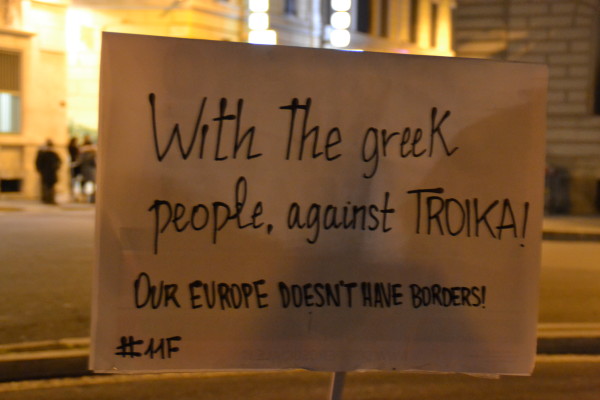 With The greek
people, against TROIKA!
OUR EUROPE DOESN'T HAVE BORDERS!
#11F